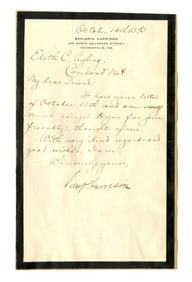 October 16th 1893
BENJAMIN HARRISON
674 NORTH DELAWARE STREET,
INDIANAPOLIS, IND.
Edith C. Ayling,
Concord N.H.
My dear Friend;
I have your letter
of October 11th and am very
much obliged to you for your
friendly thought of me.
With very kind regards and
good wishes, I am,
Sincerely yours,
Benj Harrison